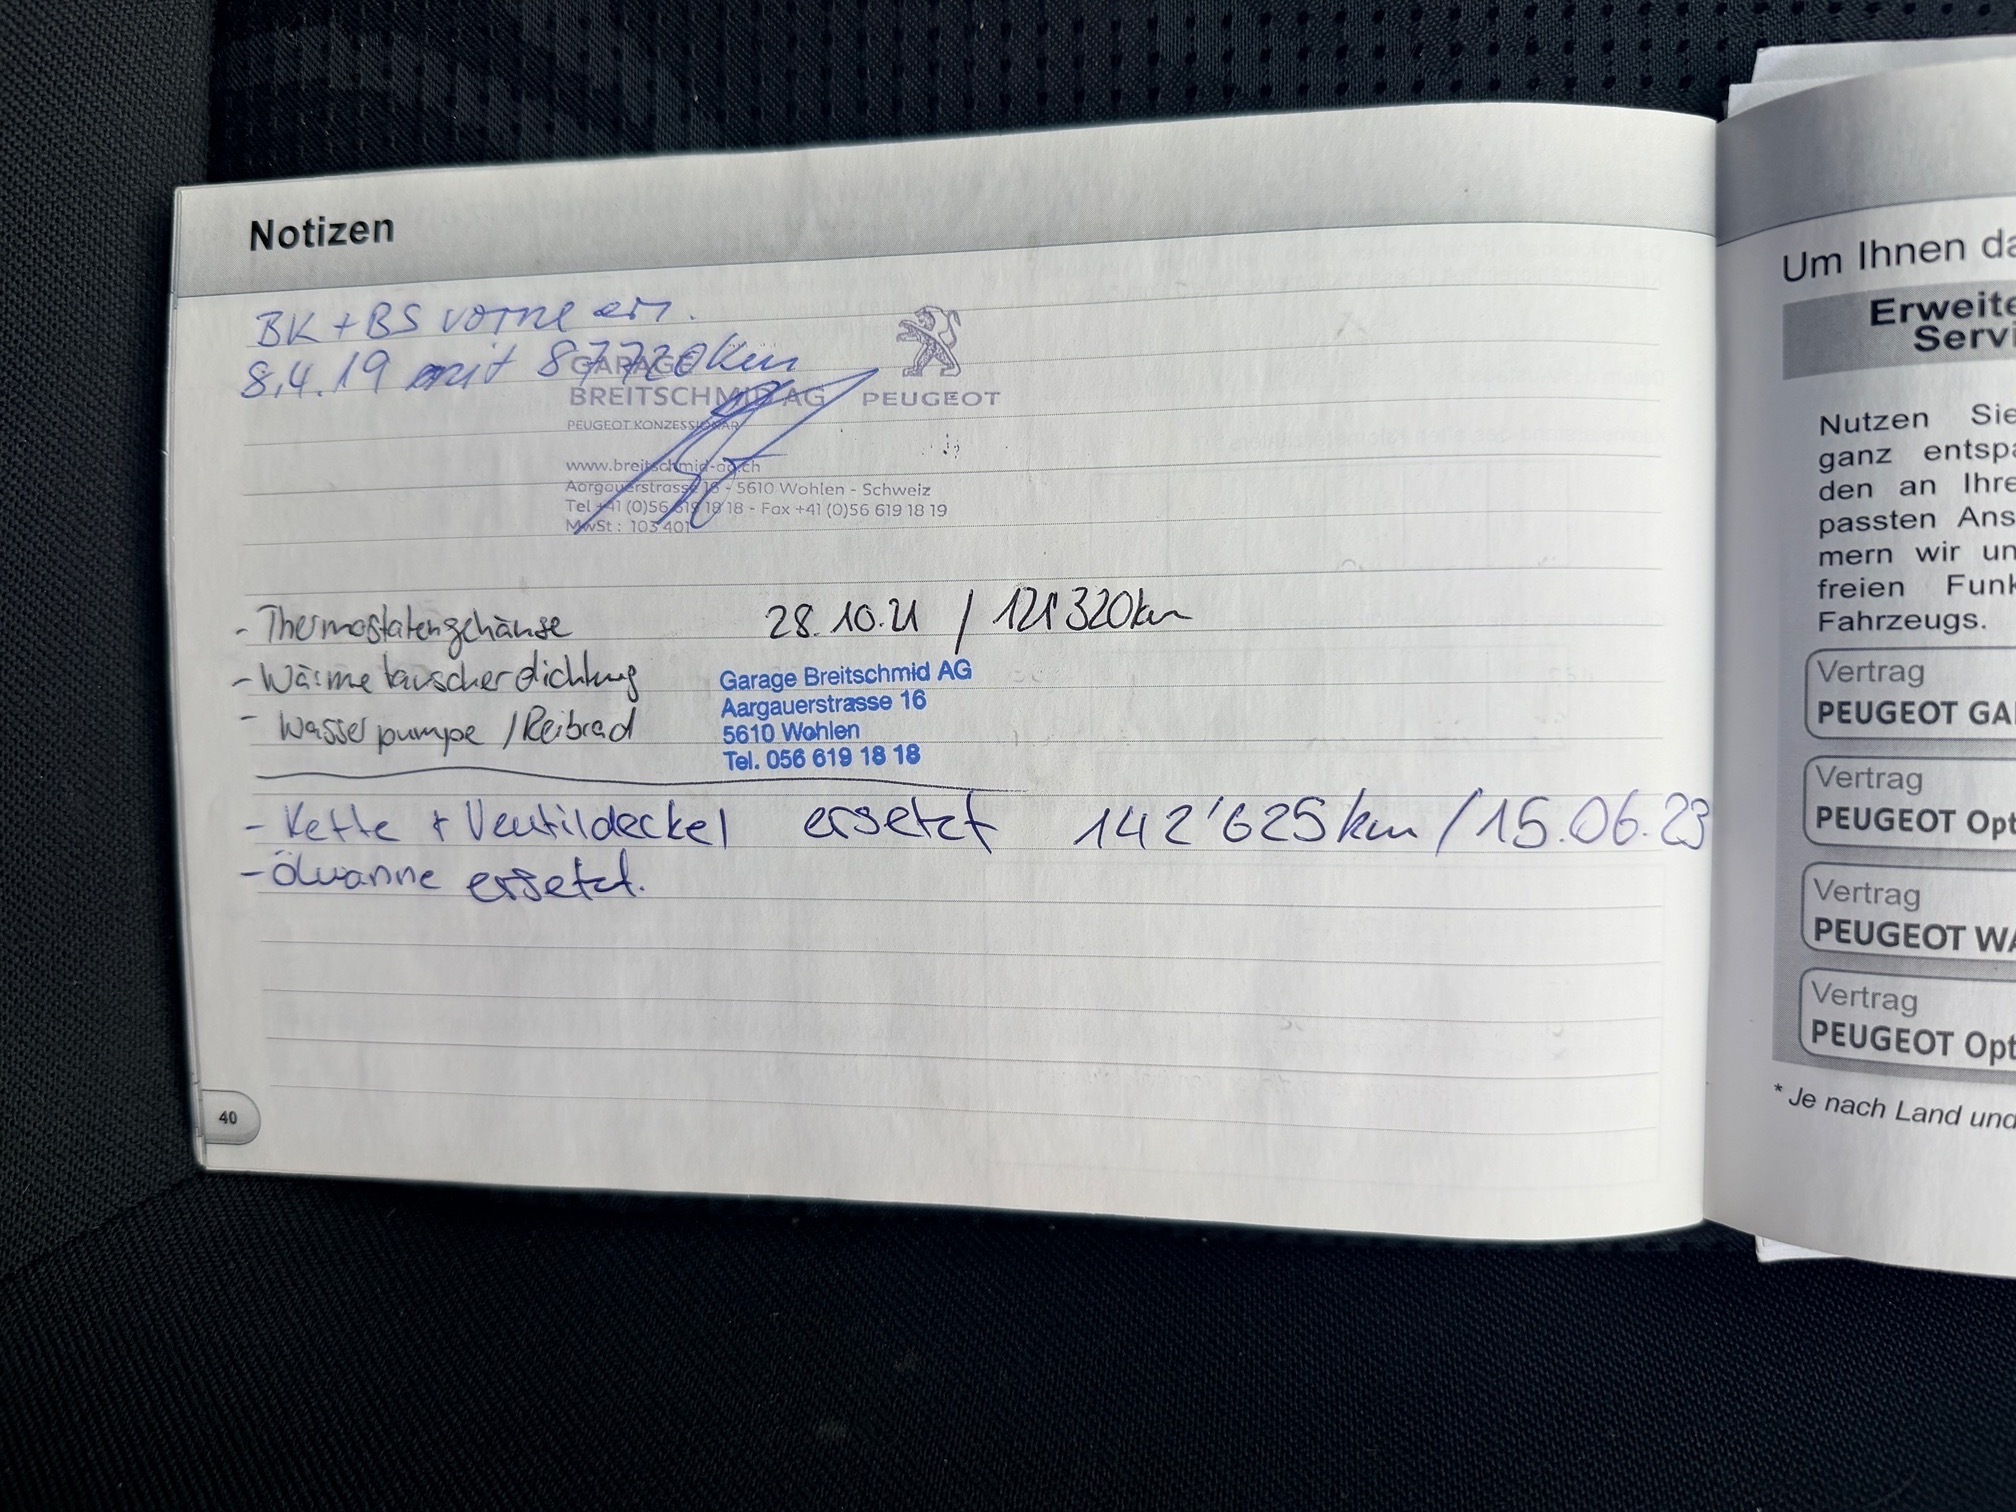 Notizen
BK + BS vorne ers.
8.4.19 mit 87720km
GARAGE
BREITSCHMID AG
PEUGEOT
PEUGEOT KONZESSIONÄR
www.breitschmid-ag.ch
Aargauerstrasse 16 - 5610 Wohlen - Schweiz
Tel +41 (0)56 619 18 18 - Fax +41 (0)56 619 18 19
MwSt : 103 401
- Thermostatengehäuse 28.10.21 / 121'320km
- Wärmetauscherdichtung
- Wasserpumpe / Reibrad
Garage Breitschmid AG
Aargauerstrasse 16
5610 Wohlen
Tel. 056 619 18 18
- Kette + Ventildeckel ersetzt 142'625km / 15.06.23
- Ölwanne ersetzt.
40
Um Ihnen da
Erweite
Servi
Nutzen Sie
ganz entspa
den an Ihre
passten Ans
mern wir un
freien Funk
Fahrzeugs.
Vertrag
PEUGEOT GA
Vertrag
PEUGEOT Opt
Vertrag
PEUGEOT WA
Vertrag
PEUGEOT Opt
* Je nach Land und